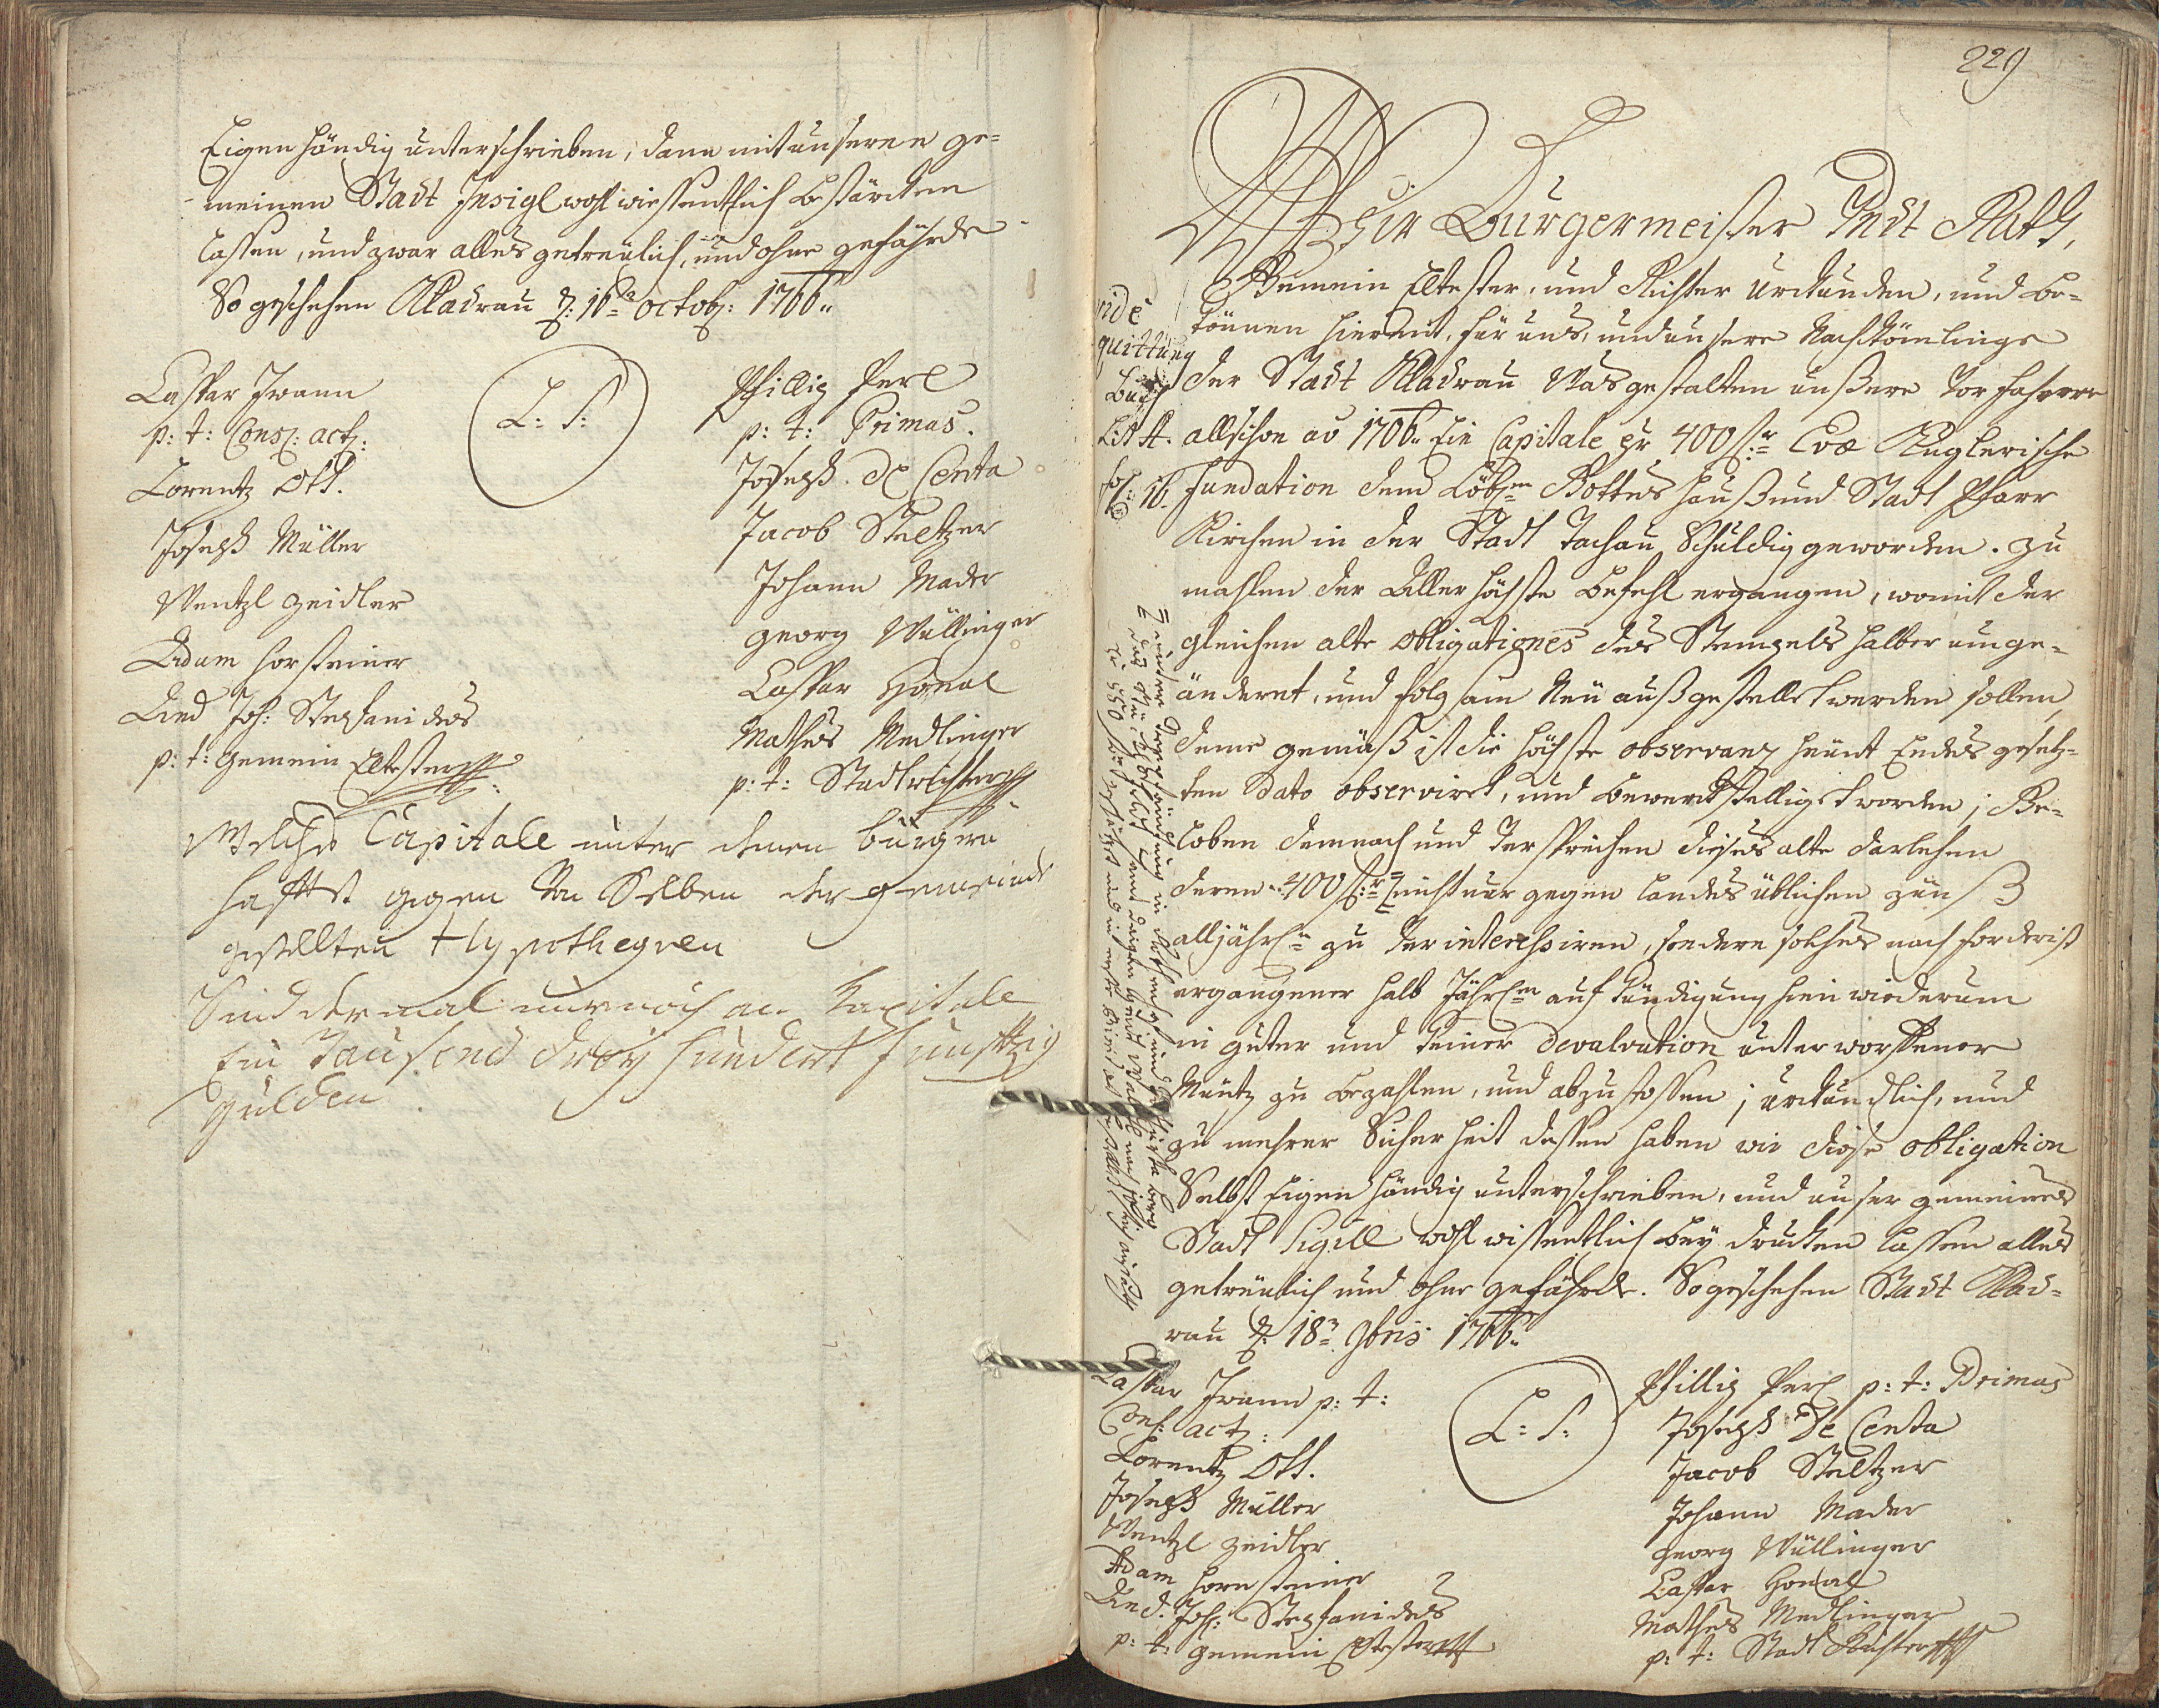 Eigenhändig unterschrieben, dann mit unseren ge=
meinen Stadt Insigl wohl wiessentlich bestärcken
lassen, und zwar alles getreülich, und ohne gefährde
So geschehen Kladrau d: 16ten octob: 1766..
Caspar Iwann
p: t: Cons: act:
Lorentz Ott.
Joseph Müller
Wentzl Zeidler
Adam Hornsteiner
And Joh: Stephanides
p: t: Gemein Eltester
L: S:
Phillip Perl
p: t: Primas.
Joseph. De Centa
Jacob Steltzer
Johann Mader
Georg Wüllinger
Caspar Honal
Mathes Medlinger
p: t: Stadtrichter
Welches Capitale unter denen bürgern
hafftet gegen von Selben der gemeinde
gestellten Hypothequen
Sind dermal nur noch an Kapitale
Ein Tausend drey hundert funftzig
gulden
229
Wir Burgermeister Undt Rath,
Gemein Eltester, und Richter Urckunden, und be=
können hiermit, für uns, und unsere Nachkömlinge
der Stadt Kladrau Was gestalten unßere Vorfahrere
allschon ao 1706.. Ein Capitale pr 400 fl:r Evæ Kuglerische
Fundation dem Löbl:en Gottes Hauß und Stadt Pfarr
Kirchen in der Stadt Tachau Schuldig geworden. zu
mahlen der Aller höchste befehl ergangen, womit der
gleichen alte obligationes des Stempels halber umge=
änderet, und folgsam Neü außgestellet werden sollen,
deme gemäß ist die höchste observanz heünt Endes gesetz=
ten Dato observiret, und bewerckstelliget worden; Ge=
loben demnach und Versprechen dieses alte darlehen
deren 400 fl:r nicht nur gegen landes üblichen zünß
alljährl:n zu Verinteressiren, sondern solches nach forderist
ergangener halb Jährl:en aufkündigung hin wiederum
in guter und keiner devalvation unterworffener
Müntz zu bezahlen, und abzustossen; urckundlich, und
zu mehrer Sicherheit dessen haben wir diese obligation
Selbst Eigenhändig unterschrieben, und unser gemeines
Stadt Sigill wohl wissentlich bey drucken lassen alles
getreülich und ohne gefährde. So geschehen Stadt Klad=
rau d: 18ten 9bris 1766..
vide
quittung
Buch
Lit A.
fol: 16.
Caspar Iwann p: t:
Cons: act:
Lorentz Ott.
Joseph Müller
Wentzl Zeidler
Adam Hornsteiner
And. Joh: Stephanides
p: t: gemein Eltester
L: S:
Phillip Perl p: t: Primas
Joseph De Centa
Jacob Steltzer
Johann Mader
Georg Wüllinger
Caspar Honal
Mathes Medlinger
p: t: Stadt Richter